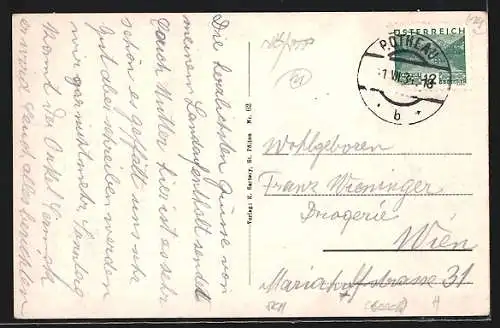 Die herzlichsten Grüsse von
meinem Landaufenthalt sendet
Mutter hier ist es sehr
schön es gefällt uns sehr
gut aber schreiben werden
wir gar nicht mehr, Sonntag
kommt der Onkel
und alles berichten
Verlag: K. Hartwey, St. Pölten Nr. 62
ÖSTERREICH
POTKEAU
-1 VII 3
b
12
Wohlgeboren
Franz Wieninger
Drogerie
Wien
Mariahilfstrasse 31